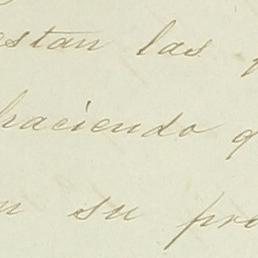 estan las
haciendo q
n su pro